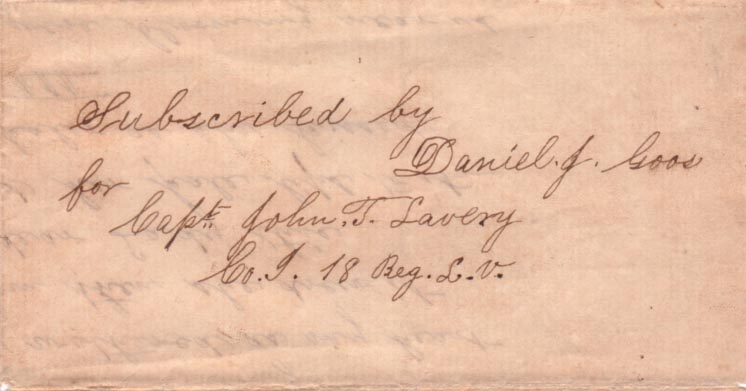 Subscribed by
Daniel. J. Goos
for
Capt. John. T. Lavery
Co. I. 18 Reg. L. V.